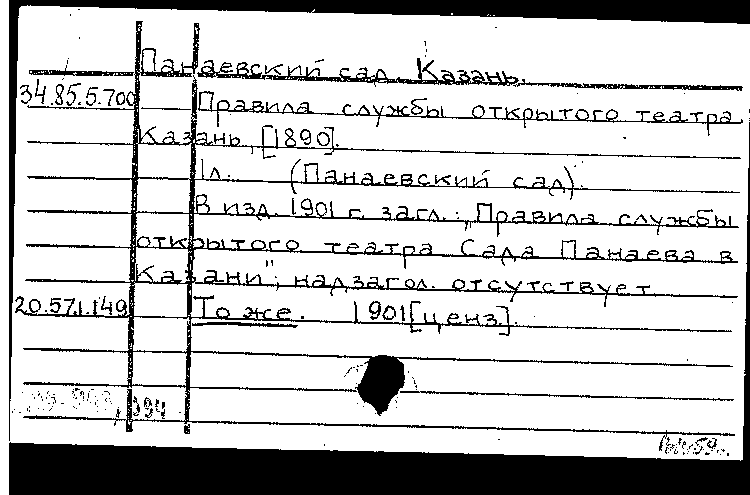 Панаевский сад. Казань.
34.85.5.700 Правила службы открытого театра
Казань, [1890].
1л. (Панаевский сад).
В изд. 1901 г. загл.: „Правила службы
открытого театра Сада Панаева в
Казани"; надзагол. отсутствует.
20.57.1.149 То же. 1901[ценз].